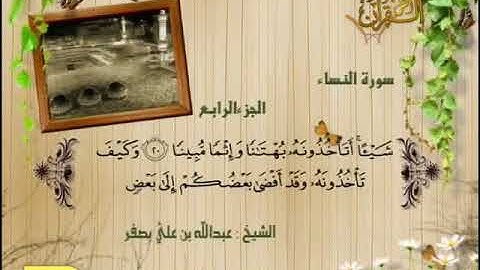 القرآن
سورة النساء
الجزء الرابع
شَيْـًٔا ۚ أَتَأْخُذُونَهُۥ بُهْتَـٰنًا وَإِثْمًا مُّبِينًا ﴿٢٠﴾ وَكَيْفَ
تَأْخُذُونَهُۥ وَقَدْ أَفْضَىٰ بَعْضُكُمْ إِلَىٰ بَعْضٍ
الشيخ : عبدالله بن علي بصفر